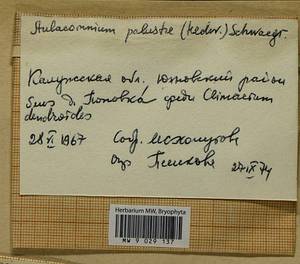 Aulacomnium palustre (Hedw.) Schwaegr.
Калужская обл. район
близ д. Поповка среди Climacium
dendroides
28 VI 1967 Собр.
Опр. 27 IX 74
Herbarium MW, Bryophyta
MW 9 029 137